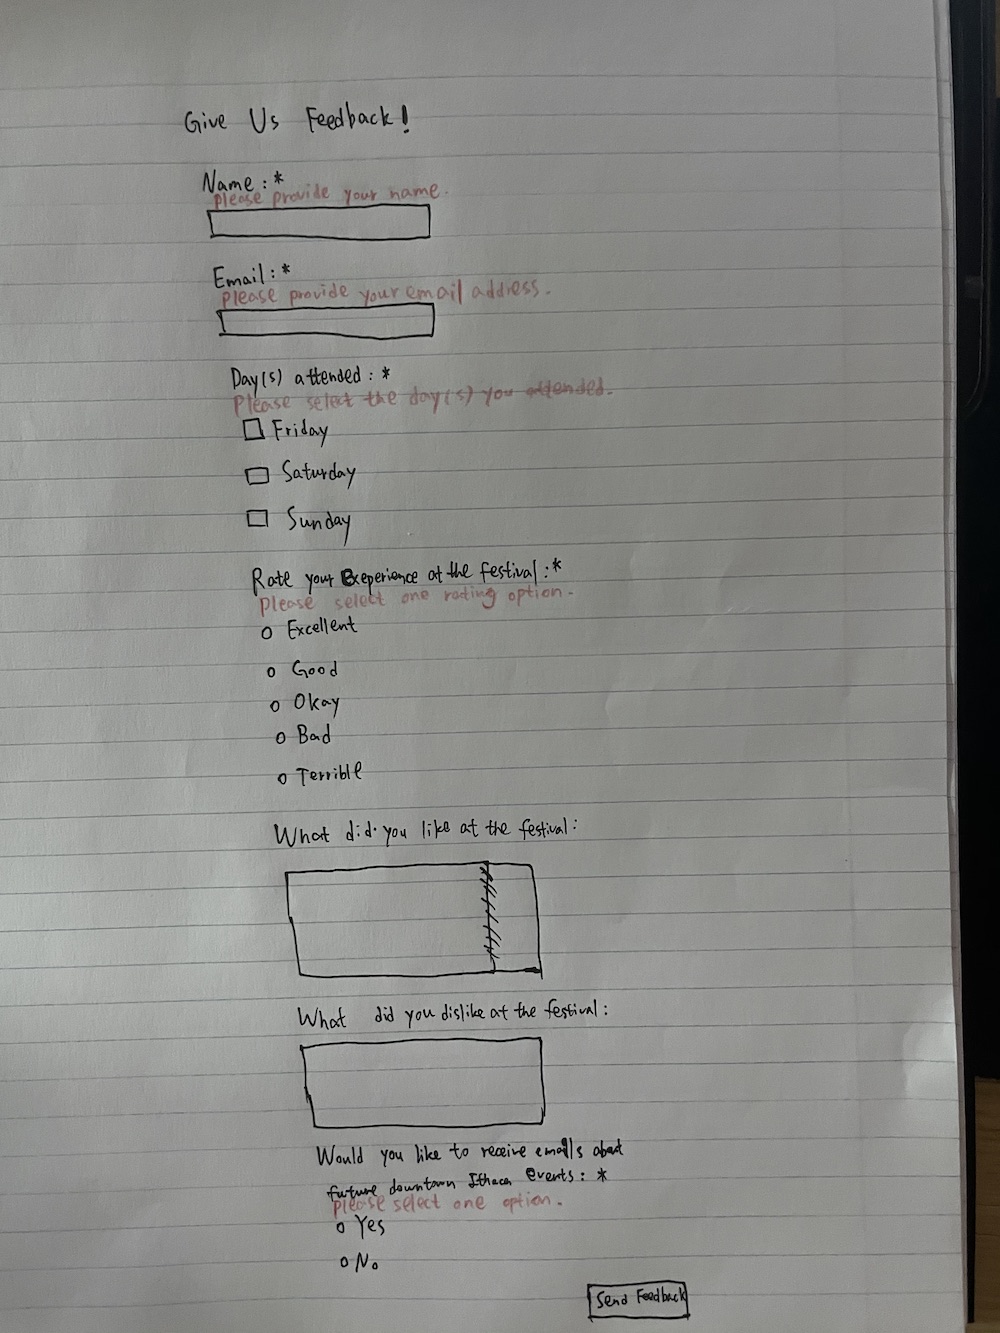 Give Us Feedback!
Name:*
please provide your name.
Email:*
Please provide your email address.
Day(s) attended:*
Please select the day(s) you attended.
Friday
Saturday
Sunday
Rate your Exeperience at the festival:*
Please select one rating option.
Excellent
Good
Okay
Bad
Terrible
What did you like at the festival:
What did you dislike at the festival:
Would you like to receive emails about
future downtown Ithaca events:*
please select one option.
Yes
No
Send Feedback